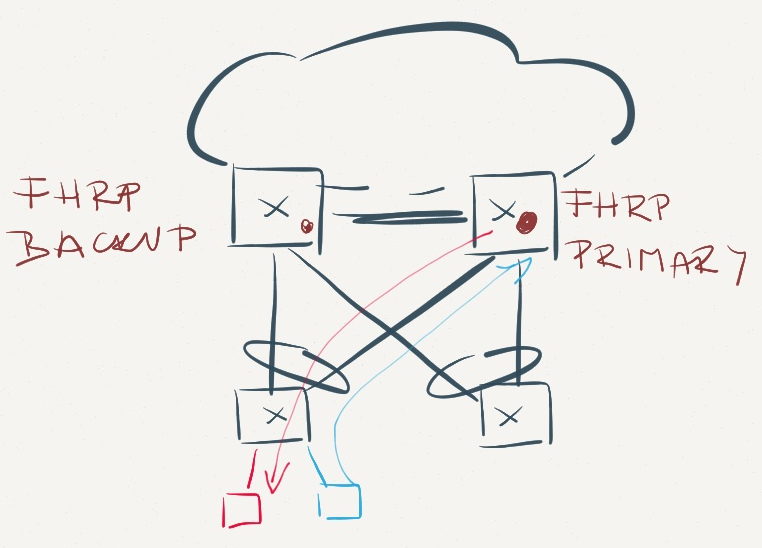 FHRP
BACKUP
FHRP
PRIMARY